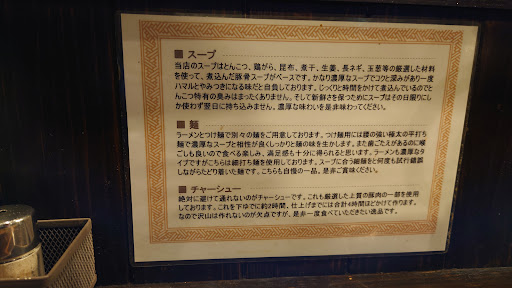 ■ スープ
当店のスープはとんこつ、鶏がら、昆布、煮干、生姜、長ネギ、玉葱等の厳選した材料
を使って、煮込んだ豚骨スープがベースです。かなり濃厚なスープでコクと深みがあり一度
ハマルとやみつきになる味だと自負しております。じっくりと時間をかけて煮込んでいるのでと
んこつ特有の臭みはまったくありません。そして新鮮さを保つためにスープはその日限りにし
か使わず翌日に持ち込みません。濃厚な味わいを是非味わってください。
■ 麺
ラーメンとつけ麺で別々の麺をご用意しております。つけ麺用には腰の強い極太の平打ち
麺で濃厚なスープと相性が良くしっかりと麺の味を生かします。また歯ごたえがあるのに喉
ごしも良いので食べる楽しみ、満足感も十分に得られると思います。ラーメンも濃厚なタイ
プですがこちらは細打ち麺を使用しております。スープに合う細麺を何度も試行錯誤
しながらたどり着いた麺です。こちらも自慢の一品。是非ご賞味ください。
■ チャーシュー
絶対に避けて通れないのがチャーシューです。これも厳選した上質の豚肉の一部を使用
しております。これを下ゆでに約2時間、仕上げまでには合計4時間ほどかけて作ります。
なので沢山は作れないのが欠点ですが、是非一度食べていただきたい逸品です。